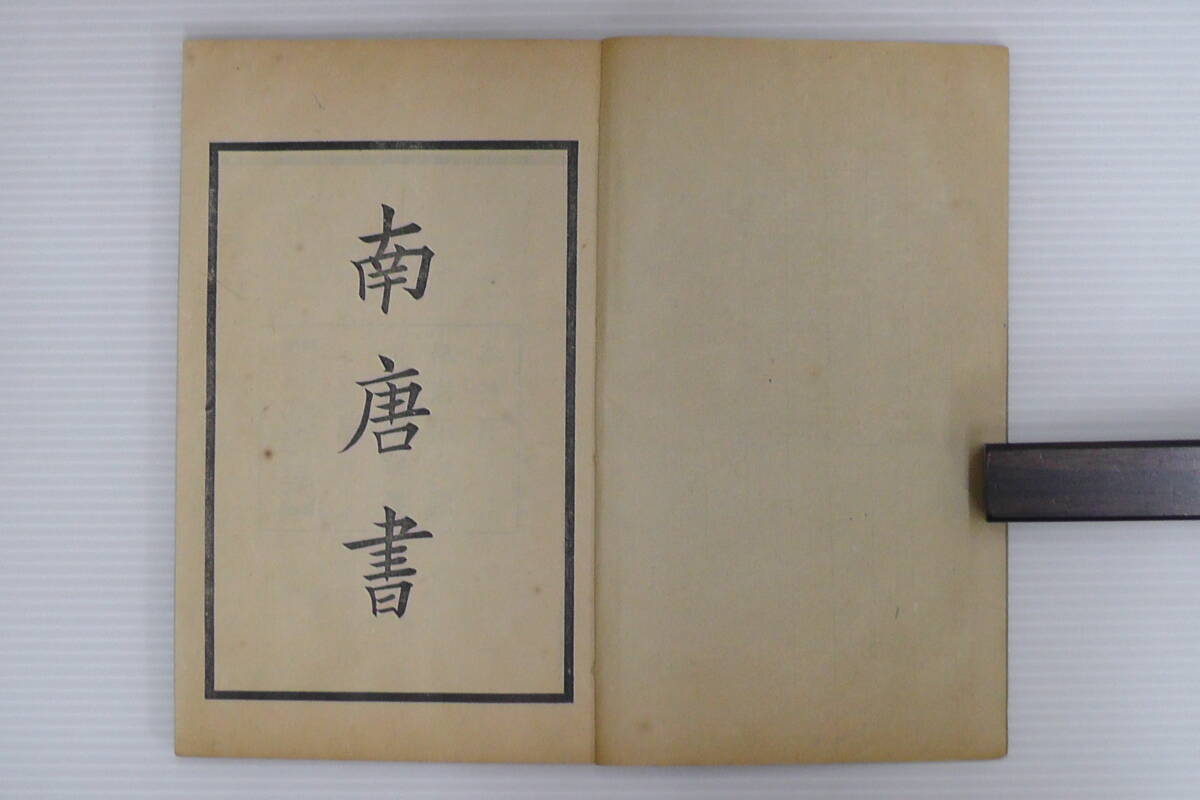 南唐書